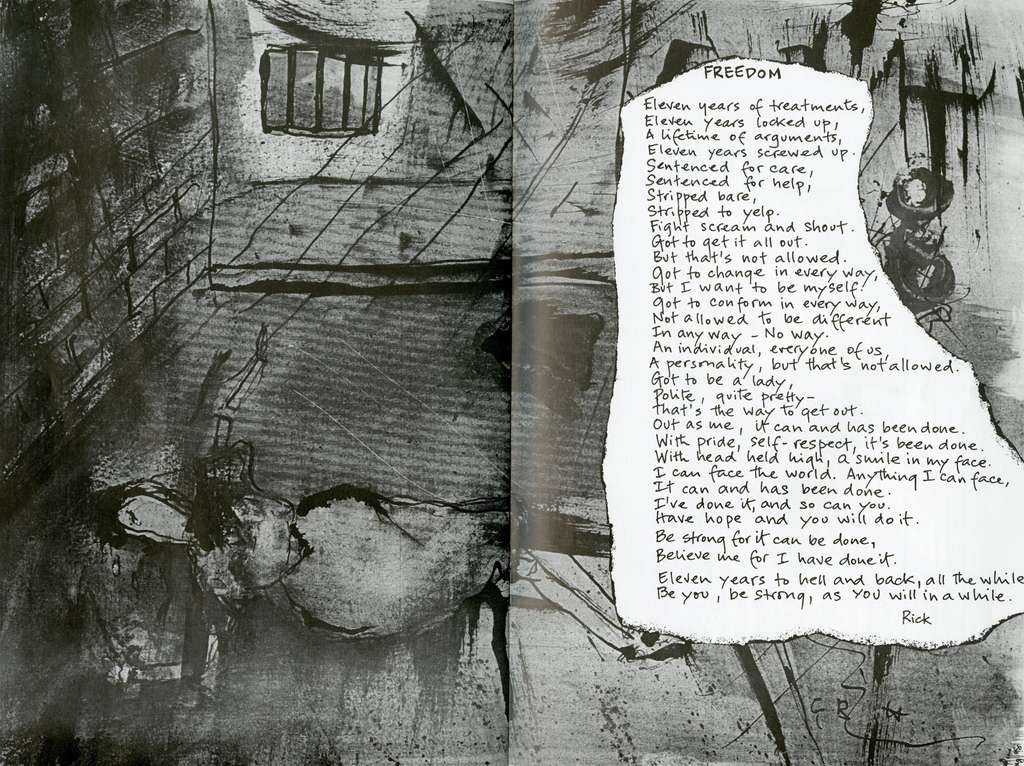 FREEDOM
Eleven years of treatments,
Eleven years locked up,
A lifetime of arguments,
Eleven years screwed up.
Sentenced for care,
Sentenced for help,
Stripped bare,
Stripped to yelp.
Fight scream and shout.
Got to get it all out.
But that's not allowed.
Got to change in every way,
But I want to be myself!
Got to conform in every way,
Not allowed to be different
In any way - No way.
An individual, everyone of us,
A personality, but that's not allowed.
Got to be a lady,
Polite, quite pretty-
that's the way to get out.
Out as me, it can and has been done.
With pride, self-respect, it's been done.
With head held high, a smile in my face.
I can face the world. Anything I can face,
It can and has been done.
I've done it, and so can you.
Have hope and you will do it.
Be strong for it can be done,
Believe me for I have done it.
Eleven years to hell and back, all the while
Be you, be strong, as you will in a while.
Rick